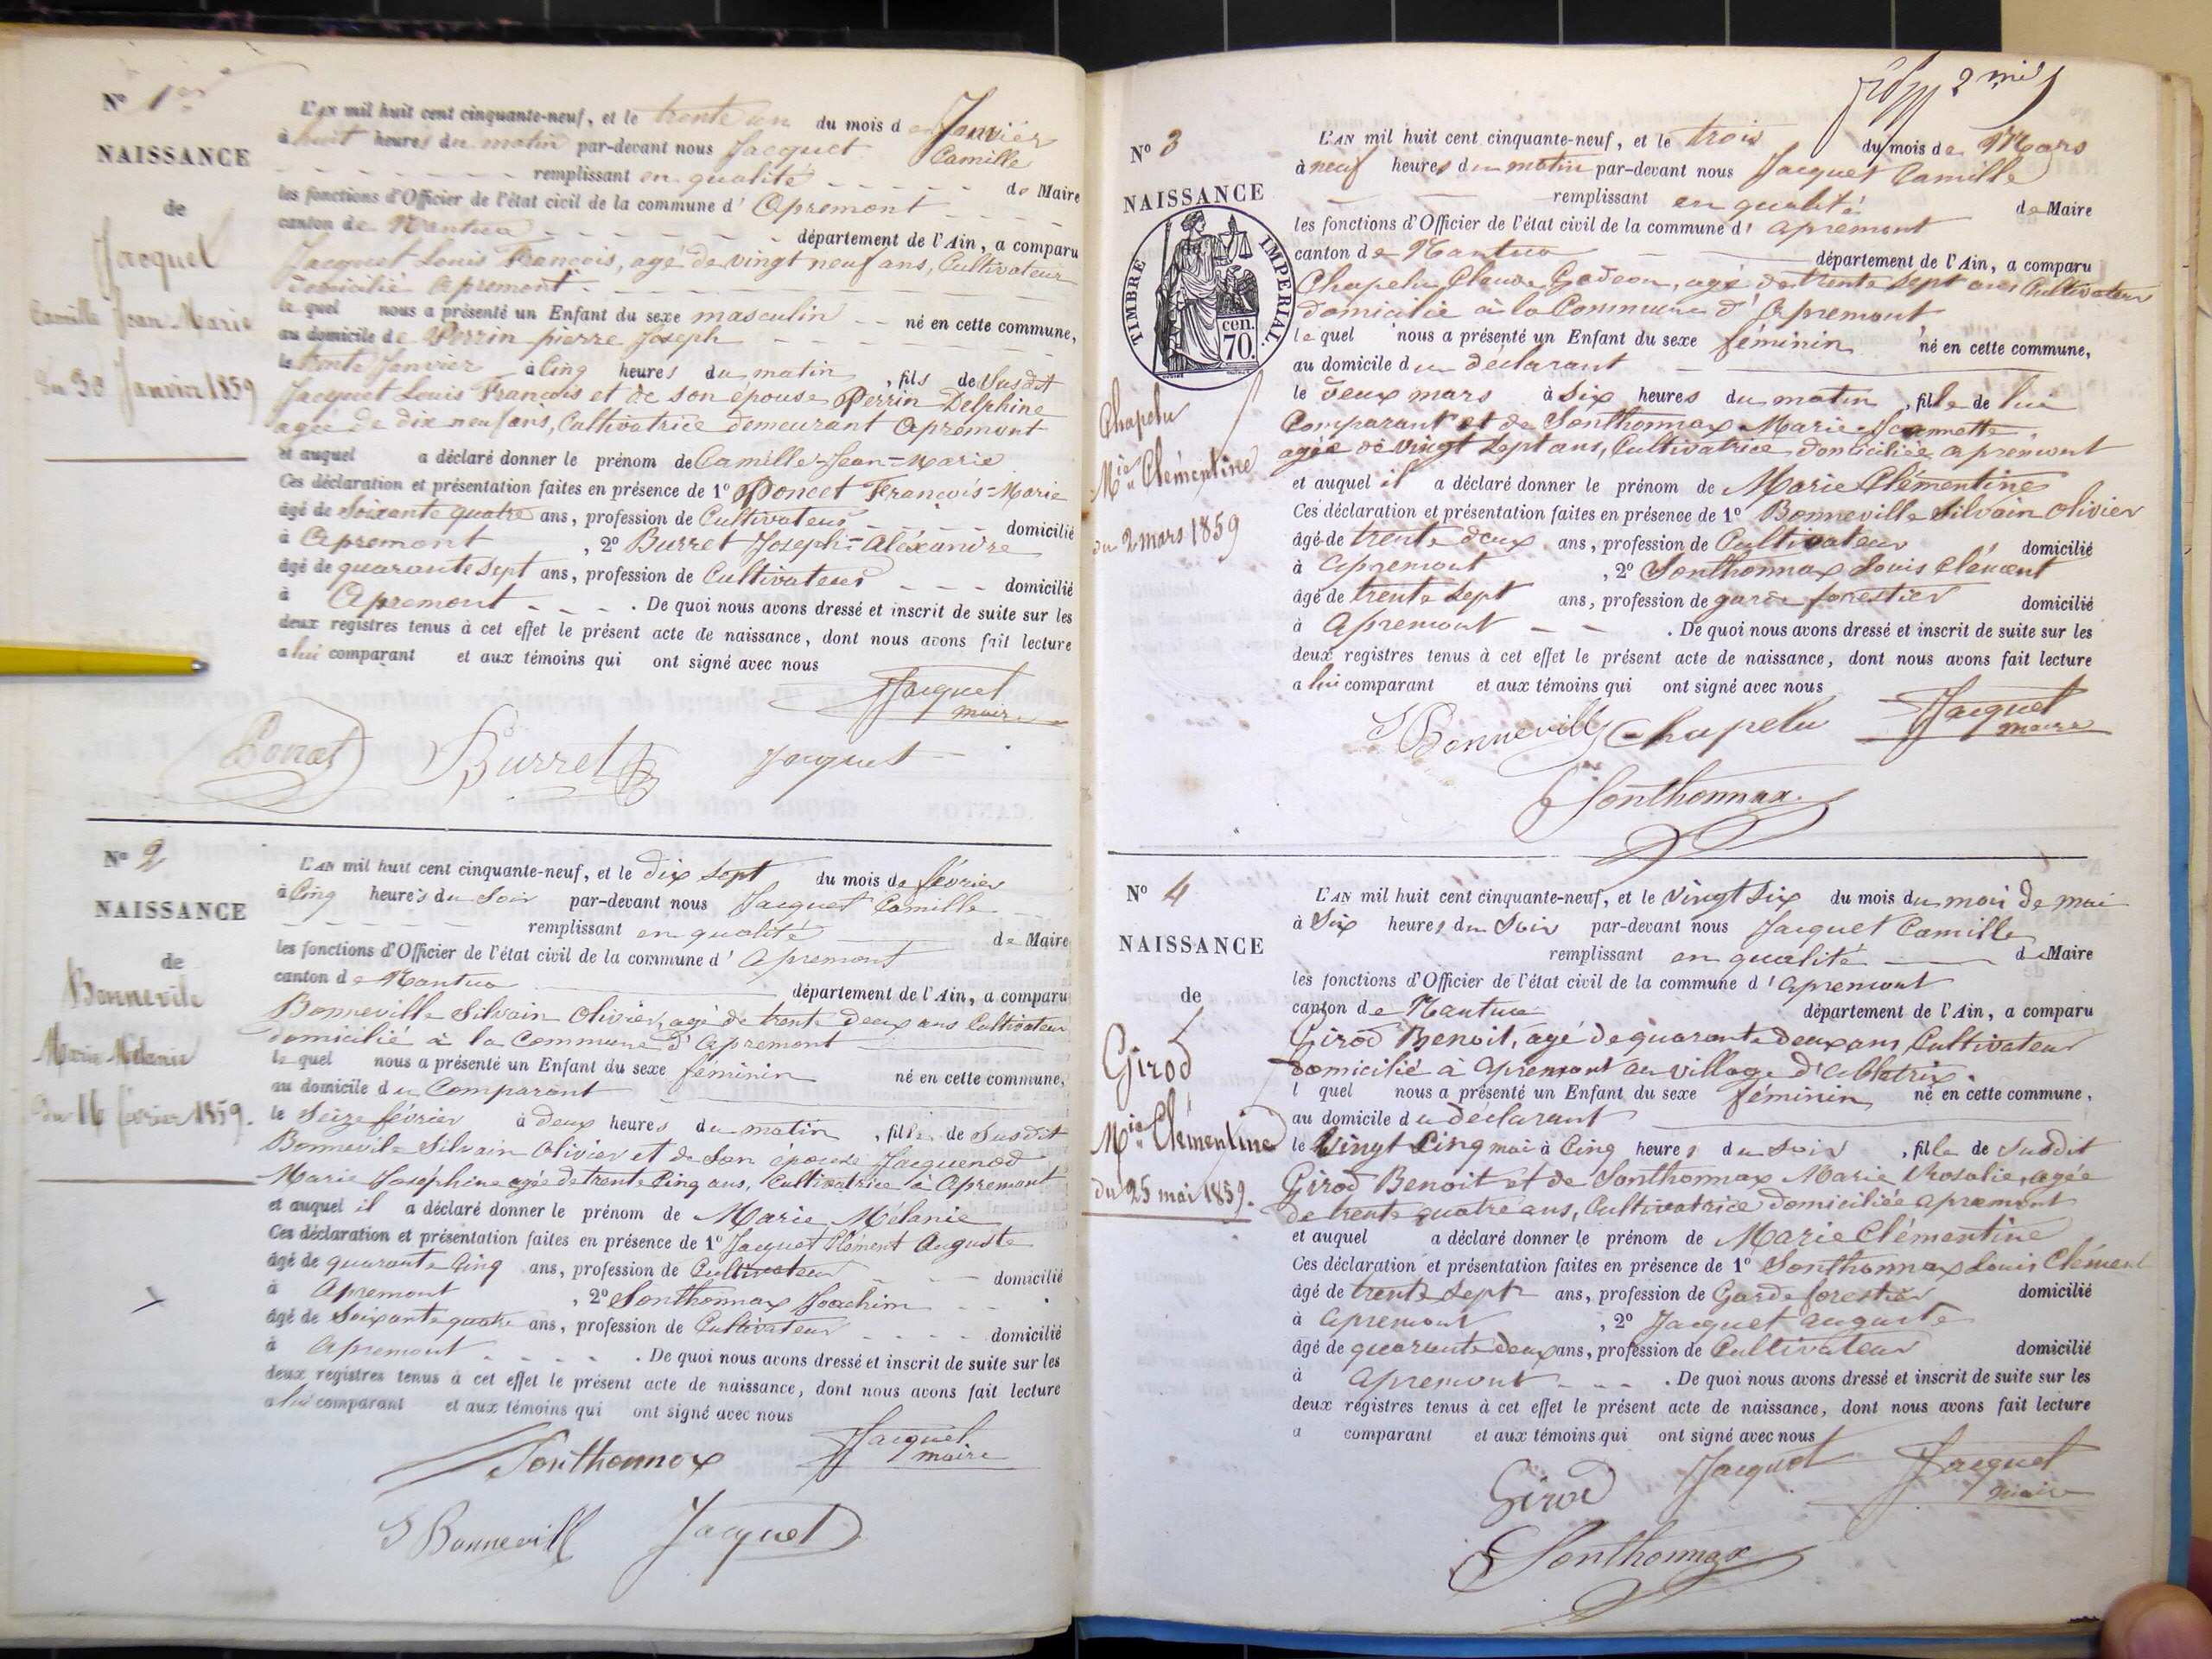 N° 1er
NAISSANCE
de
Jacquet
Camille Jean Marie
du 30 Janvier 1859
L'AN mil huit cent cinquante-neuf, et le trente un du mois de Janvier
à huit heures du matin par-devant nous Jacquet Camille
remplissant en qualité de Maire
les fonctions d'Officier de l'état civil de la commune d' Apremont
canton de Nantua département de l'Ain, a comparu
Jacquet Louis François, agé de vingt neuf ans, Cultivateur
domicilié Apremont
le quel nous a présenté un Enfant du sexe masculin né en cette commune,
au domicile de Perrin pierre Joseph
le trente Janvier à Cinq heures du matin, fils de Susdit
Jacquet Louis François et de son épouse Perrin Delphine
agée de dix neuf ans, Cultivatrice demeurant Apremont
et auquel a déclaré donner le prénom de Camille-Jean-Marie
Ces déclaration et présentation faites en présence de 1° Poncet François-Marie
âgé de Soixante quatre ans, profession de Cultivateur domicilié
à Apremont, 2° Burret Joseph-Aléxandre
âgé de quarante sept ans, profession de Cultivateur domicilié
à Apremont. De quoi nous avons dressé et inscrit de suite sur les
deux registres tenus à cet effet le présent acte de naissance, dont nous avons fait lecture
a lui comparant et aux témoins qui ont signé avec nous
Jacquet
maire
Burret Jacquet
N° 2
NAISSANCE
de
Bonnevile
Marie Mélanie
du 16 février 1859.
L'AN mil huit cent cinquante-neuf, et le dix sept du mois de février
à Cinq heures du Soir par-devant nous Jacquet Camille
remplissant en qualité de Maire
les fonctions d'Officier de l'état civil de la commune d' Apremont
canton de Nantua département de l'Ain, a comparu
Bonneville Silvain Olivier, agé de trente deux ans Cultivateur
domicilié à la Commune d'Apremont
le quel nous a présenté un Enfant du sexe féminin né en cette commune,
au domicile du Comparant
le Seize février à deux heures du matin, fille de Susdit
Bonnevile Silvain Olivier et de Son épouse Jacquenod
Marie Joséphine agée de trente Cinq ans, Cultivatrice à Apremont
et auquel il a déclaré donner le prénom de Marie Mélanie
Ces déclaration et présentation faites en présence de 1° Jacquet Clément Auguste
âgé de quarante Cinq ans, profession de Cultivateur domicilié
à Apremont, 2° Sonthonnax Joachim
âgé de Soixante quatre ans, profession de Cultivateur domicilié
à Apremont. De quoi nous avons dressé et inscrit de suite sur les
deux registres tenus à cet effet le présent acte de naissance, dont nous avons fait lecture
a lui comparant et aux témoins qui ont signé avec nous
Sonthonnax Jacquet
maire
S Bonnevill Jacquet
N° 3
NAISSANCE
TIMBRE IMPERIAL
70 cen.
Chapelu
Mie Clémentine
du 2 mars 1859
L'AN mil huit cent cinquante-neuf, et le trois du mois de Mars
à neuf heures du matin par-devant nous Jacquet Camille
remplissant en qualité de Maire
les fonctions d'Officier de l'état civil de la commune d' Apremont
canton de Nantua département de l'Ain, a comparu
Chapelu Claude Gedeon, agé de trente sept ans Cultivateur
domicilié à la Commune d'Apremont
le quel nous a présenté un Enfant du sexe féminin né en cette commune,
au domicile du déclarant
le deux mars à Six heures du matin, fille de lui
Comparant et de Sonthonnax Marie Jeannette
agée de vingt sept ans, Cultivatrice domiciliée apremont
et auquel il a déclaré donner le prénom de Marie Clémentine
Ces déclaration et présentation faites en présence de 1° Bonneville Silvain Olivier
âgé de trente deux ans, profession de Cultivateur domicilié
à Apremont, 2° Sonthonnax Louis Clément
âgé de trente sept ans, profession de garde forestier domicilié
à Apremont. De quoi nous avons dressé et inscrit de suite sur les
deux registres tenus à cet effet le présent acte de naissance, dont nous avons fait lecture
a lui comparant et aux témoins qui ont signé avec nous
S Bonnevill Chapelu Jacquet
maire
Sonthonnax
N° 4
NAISSANCE
de
Girod
Mie Clémentine
du 25 mai 1859.
L'AN mil huit cent cinquante-neuf, et le vingt six du mois du moi de mai
à Six heures du Soir par-devant nous Jacquet Camille
remplissant en qualité de Maire
les fonctions d'Officier de l'état civil de la commune d' Apremont
canton de Nantua département de l'Ain, a comparu
Girod Benoit, agé de quarante deux ans, Cultivateur
domicilié à Apremont au village d'Ablatrix.
l quel nous a présenté un Enfant du sexe féminin né en cette commune,
au domicile du déclarant
le Vingt Cinq mai à Cinq heures du soir, fille de Susdit
Girod Benoit et de Sonthonnax Marie Rosalie, agée
de trente quatre ans, Cultivatrice domiciliée apremont
et auquel a déclaré donner le prénom de Marie Clémentine
Ces déclaration et présentation faites en présence de 1° Sonthonnax Louis Clément
âgé de trente sept ans, profession de Garde forestier domicilié
à Apremont, 2° Jacquet Auguste
âgé de quarante deux ans, profession de Cultivateur domicilié
à Apremont. De quoi nous avons dressé et inscrit de suite sur les
deux registres tenus à cet effet le présent acte de naissance, dont nous avons fait lecture
a comparant et aux témoins qui ont signé avec nous
Girod Jacquet Jacquet
maire
Sonthonnax